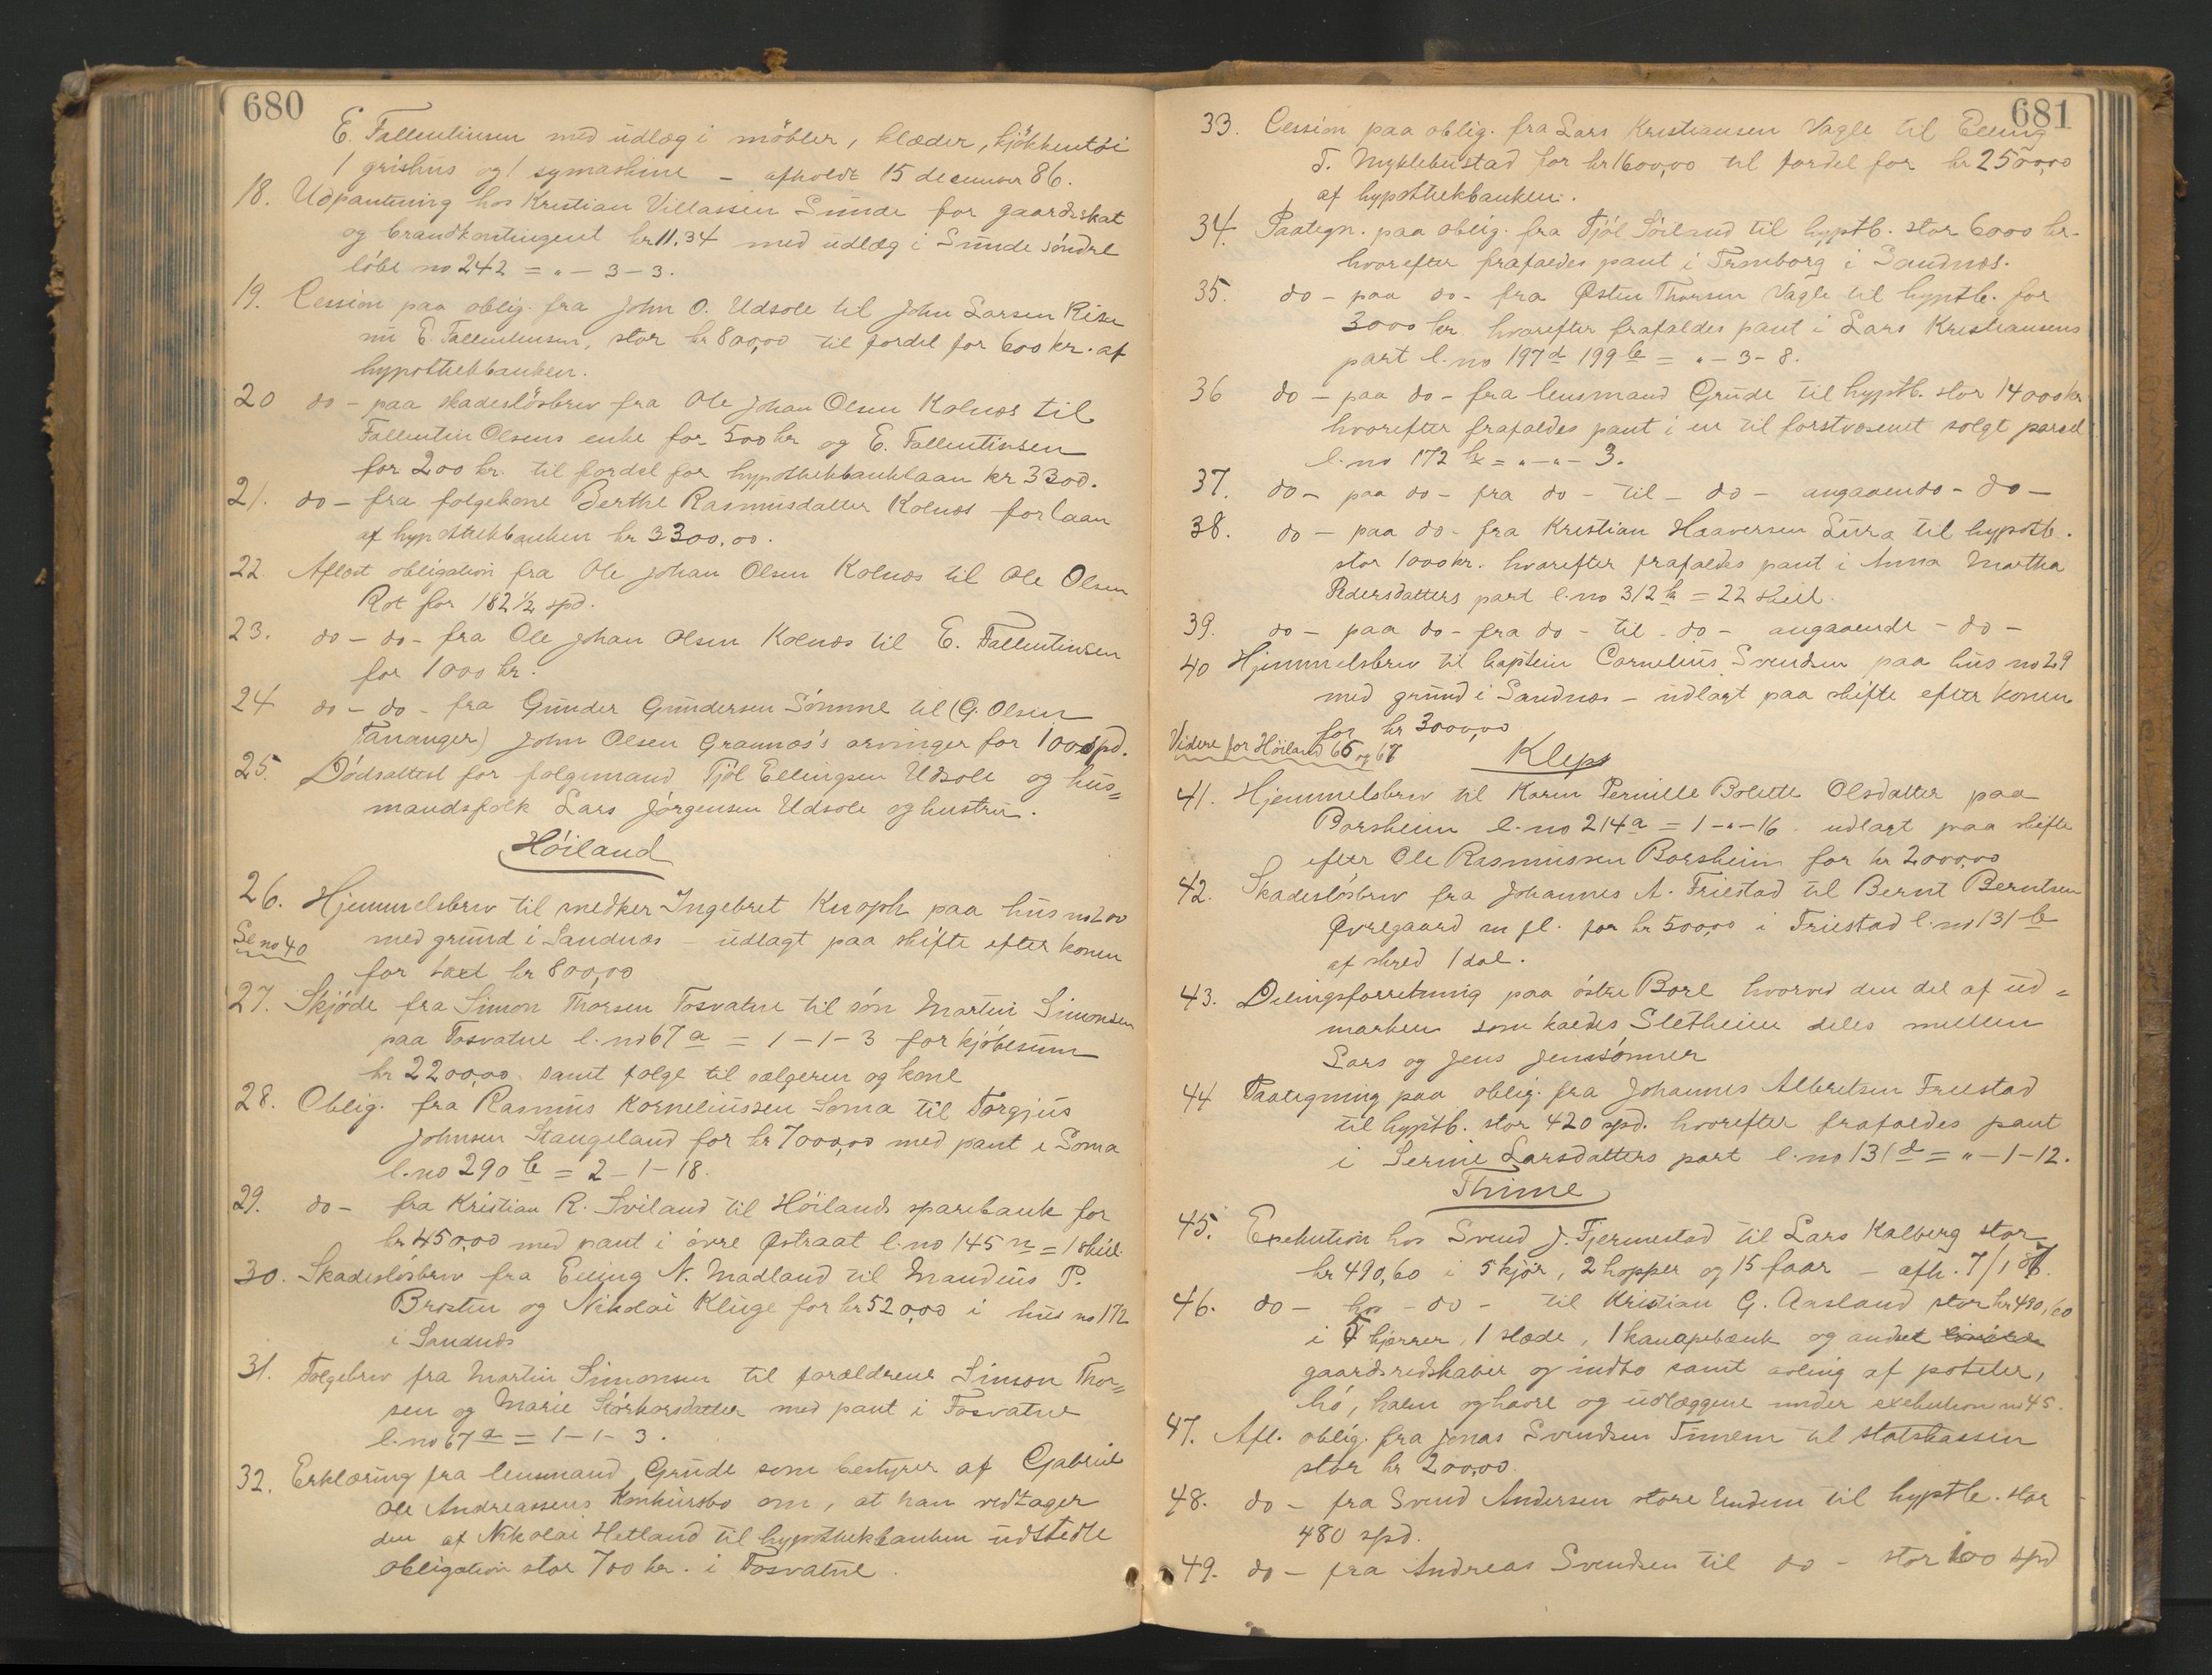 680
E. Fallentinsen med udlæg i möbler, klæder, kjökkentöi
1 grishus og 1 symaskine - afholdt 15 december 86.
18. Udpantning hos Kristian Villassen Sunde for gaardskat
og brandkontingent kr 11.34 med udlæg i Sunde söndre
löbe no 242 = „ - 3 - 3.
19. Cession paa oblig. fra John O. Udsole til John Larsen Rise
nu E. Fallentinsen, stor kr 800,00 til fordel for 600 kr. af
hypothekbanken.
20 do - paa skadeslösbrev fra Ole Johan Olsen Kolnæs til
Fallentin Olsens enke for 500 kr og E. Fallentinsen
for 200 kr. til fordel for hypothekbanklaan kr 3300.
21. do - fra folgekone Berthe Rasmusdatter Kolnæs for laan
af hypothekbanken kr 3300.00.
22. Aflæst obligation fra Ole Johan Olsen Kolnæs til Ole Olsen
Rot for 182 1/2 spd.
23. do - do - fra Ole Johan Olsen Kolnæs til E. Fallentinsen
for 1000 kr.
24 do - do - fra Gunder Gundersen Sömme til (G. Olsen
Tananger) John Olsen Grannæs's arvinger for 100 spd.
25. Dödsattest for folgemand Tjöl Ellingsen Udsole og hus=
mandsfolk Lars Jörgensen Udsole og hustru.
Höiland
26. Hjemmelsbrev til snedker Ingebret Knoph paa hus no 200
Se no 40 med grund i Sandnæs - udlagt paa skifte efter konen
for taxt kr 800,00
27. Skjöde fra Simon Thorsen Fosvatne til sön Martin Simonsen
paa Fosvatne l. no 67 a = 1 - 1 - 3 for kjöbesum
kr 2200,00 samt folge til sælgeren og kone
28. Oblig. fra Rasmus Korneliussen Soma til Torgjus
Johnsen Stangeland for kr 7000,00 med pant i Soma
l. no 290 b = 2 - 1 - 18.
29. do - fra Kristian R. Sviland til Höilands sparebank for
kr 450,00 med pant i övre Østraat l. no 145 n = 1 skil.
30. Skadeslösbrev fra Elling N. Madland til Mandius P.
Brosten og Nikolai Kluge for kr 520,00 i hus no 172
i Sandnæs
31. Folgebrev fra Martin Simonsen til forældrene Simon Thor=
sen og Marie Storkorsdatter med pant i Fosvatne
l. no 67 a = 1 - 1 - 3.
32. Erklæring fra lensmand Grude som bestyrer af Gabriel
Ole Andreassens konkursbo om, at han vedtager
den af Nikolai Hetland til hypothekbanken udstedte
obligation stor 700 kr. i Fosvatne.
681
33. Cession paa oblig. fra Lars Kristiansen Vagle til Elling
T. Myklebustad for kr 1600,00 til fordel for kr 2500,00
af hypothekbanken.
34. Paategn. paa oblig. fra Tjöl Söiland til hyptb. stor 6000 kr.
hvorefter frafaldes pant i Tronborg i Sandnæs.
35. do - paa do - fra Østen Thorsen Vagle til hyptb. for
3000 kr. hvorefter frafaldes pant i Lars Kristiansens
part l. no 197 d 199 b = „ - 3 - 8.
36 do - paa do - fra lensmand Grude til hyptb. stor 14000 kr
hvorefter frafaldes pant i en til forstvæsenet solgt parcel
l. no 172 k = „ - „ - 3.
37. do - paa do - fra do - til - do - angaaende - do -
38. do - paa do - fra Kristian Haaversen Lura til hypotb.
stor 1000 kr. hvorefter frafaldes pant i Anna Martha
Pedersdatters part l. no 312 k = 22 skill.
39. do - paa do - fra do - til - do - angaaende - do -
40 Hjemmelsbrev til kaptein Cornelius Svendsen paa hus no 29
med grund i Sandnæs - udlagt paa skifte efter konen
for kr 3000,00
Videre for Höiland 65 og 67
Klep
41. Hjemmelsbrev til Karen Pernille Bolette Olsdatter paa
Borsheim l. no 214 a = 1 - „ - 16. udlagt paa skifte
efter Ole Rasmussen Borsheim for kr 2000,00
42. Skadeslösbrev fra Johannes A. Friestad til Bernt Berntsen
Øvregaard m fl. for kr 500,00 i Friestad l. no 131 b
af skyld 1 dal.
43. Delingsforretning paa östre Bore hvorved den del af ud=
marken som kaldes Sletheien deles mellem
Lars og Jens Jenssönner
44 Paategning paa oblig. fra Johannes Albretsen Friestad
til hyptb. stor 420 spd. hvorefter frafaldes pant
i Serine Larsdatters part l. no 131 d = „ - 1 - 12.
Thime
45. Exekution hos Svend J. Fjermestad til Lars Kalberg stor
kr 490,60 i 5 kjör, 2 hopper og 15 faar - afh. 7/1 87.
46. do - hos - do - til Kristian G. Aasland stor kr 490,60
i kjærrer, 1 slæde, 1 kanapebænk og andet
gaardsredskaber og indbo samt avling af poteter,
hö, halm og havre og udlæggene under exekution no 45.
47. Afl. oblig. fra Jonas Svendsen Tunem til statskassen
stor kr 200,00.
48. do - fra Svend Andersen store Undem til hyptb. stor
480 spd.
49. do - fra Andreas Svendsen til do - stor 100 spd